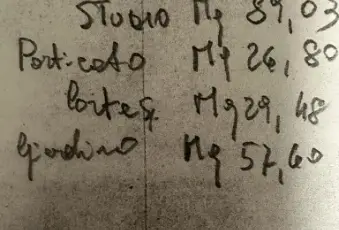 STUDIO Mq 89,03
Porticato Mq 26,80
Cortes. Mq 29,48
Giardino Mq 57,60